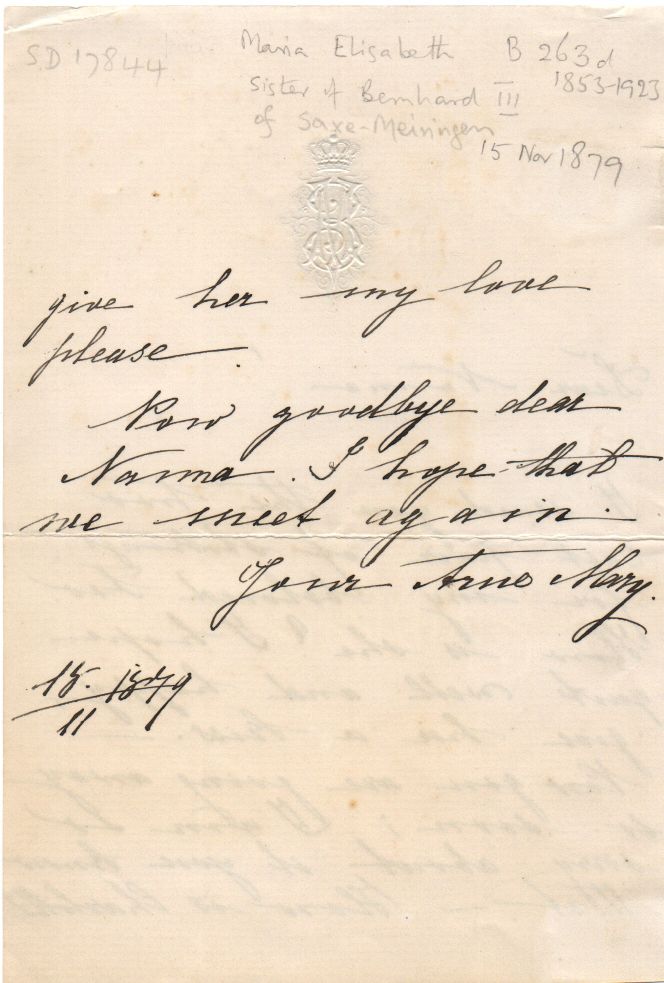 S.D 17844
Maria Elisabeth B 263d
sister of Bernhard III 1853-1923
of Saxe-Meiningen
15 Nov 1879
give her my love
please.
Now goodbye dear
Nanna. I hope that
we meet again.
Your true Mary.
15. 1879
11